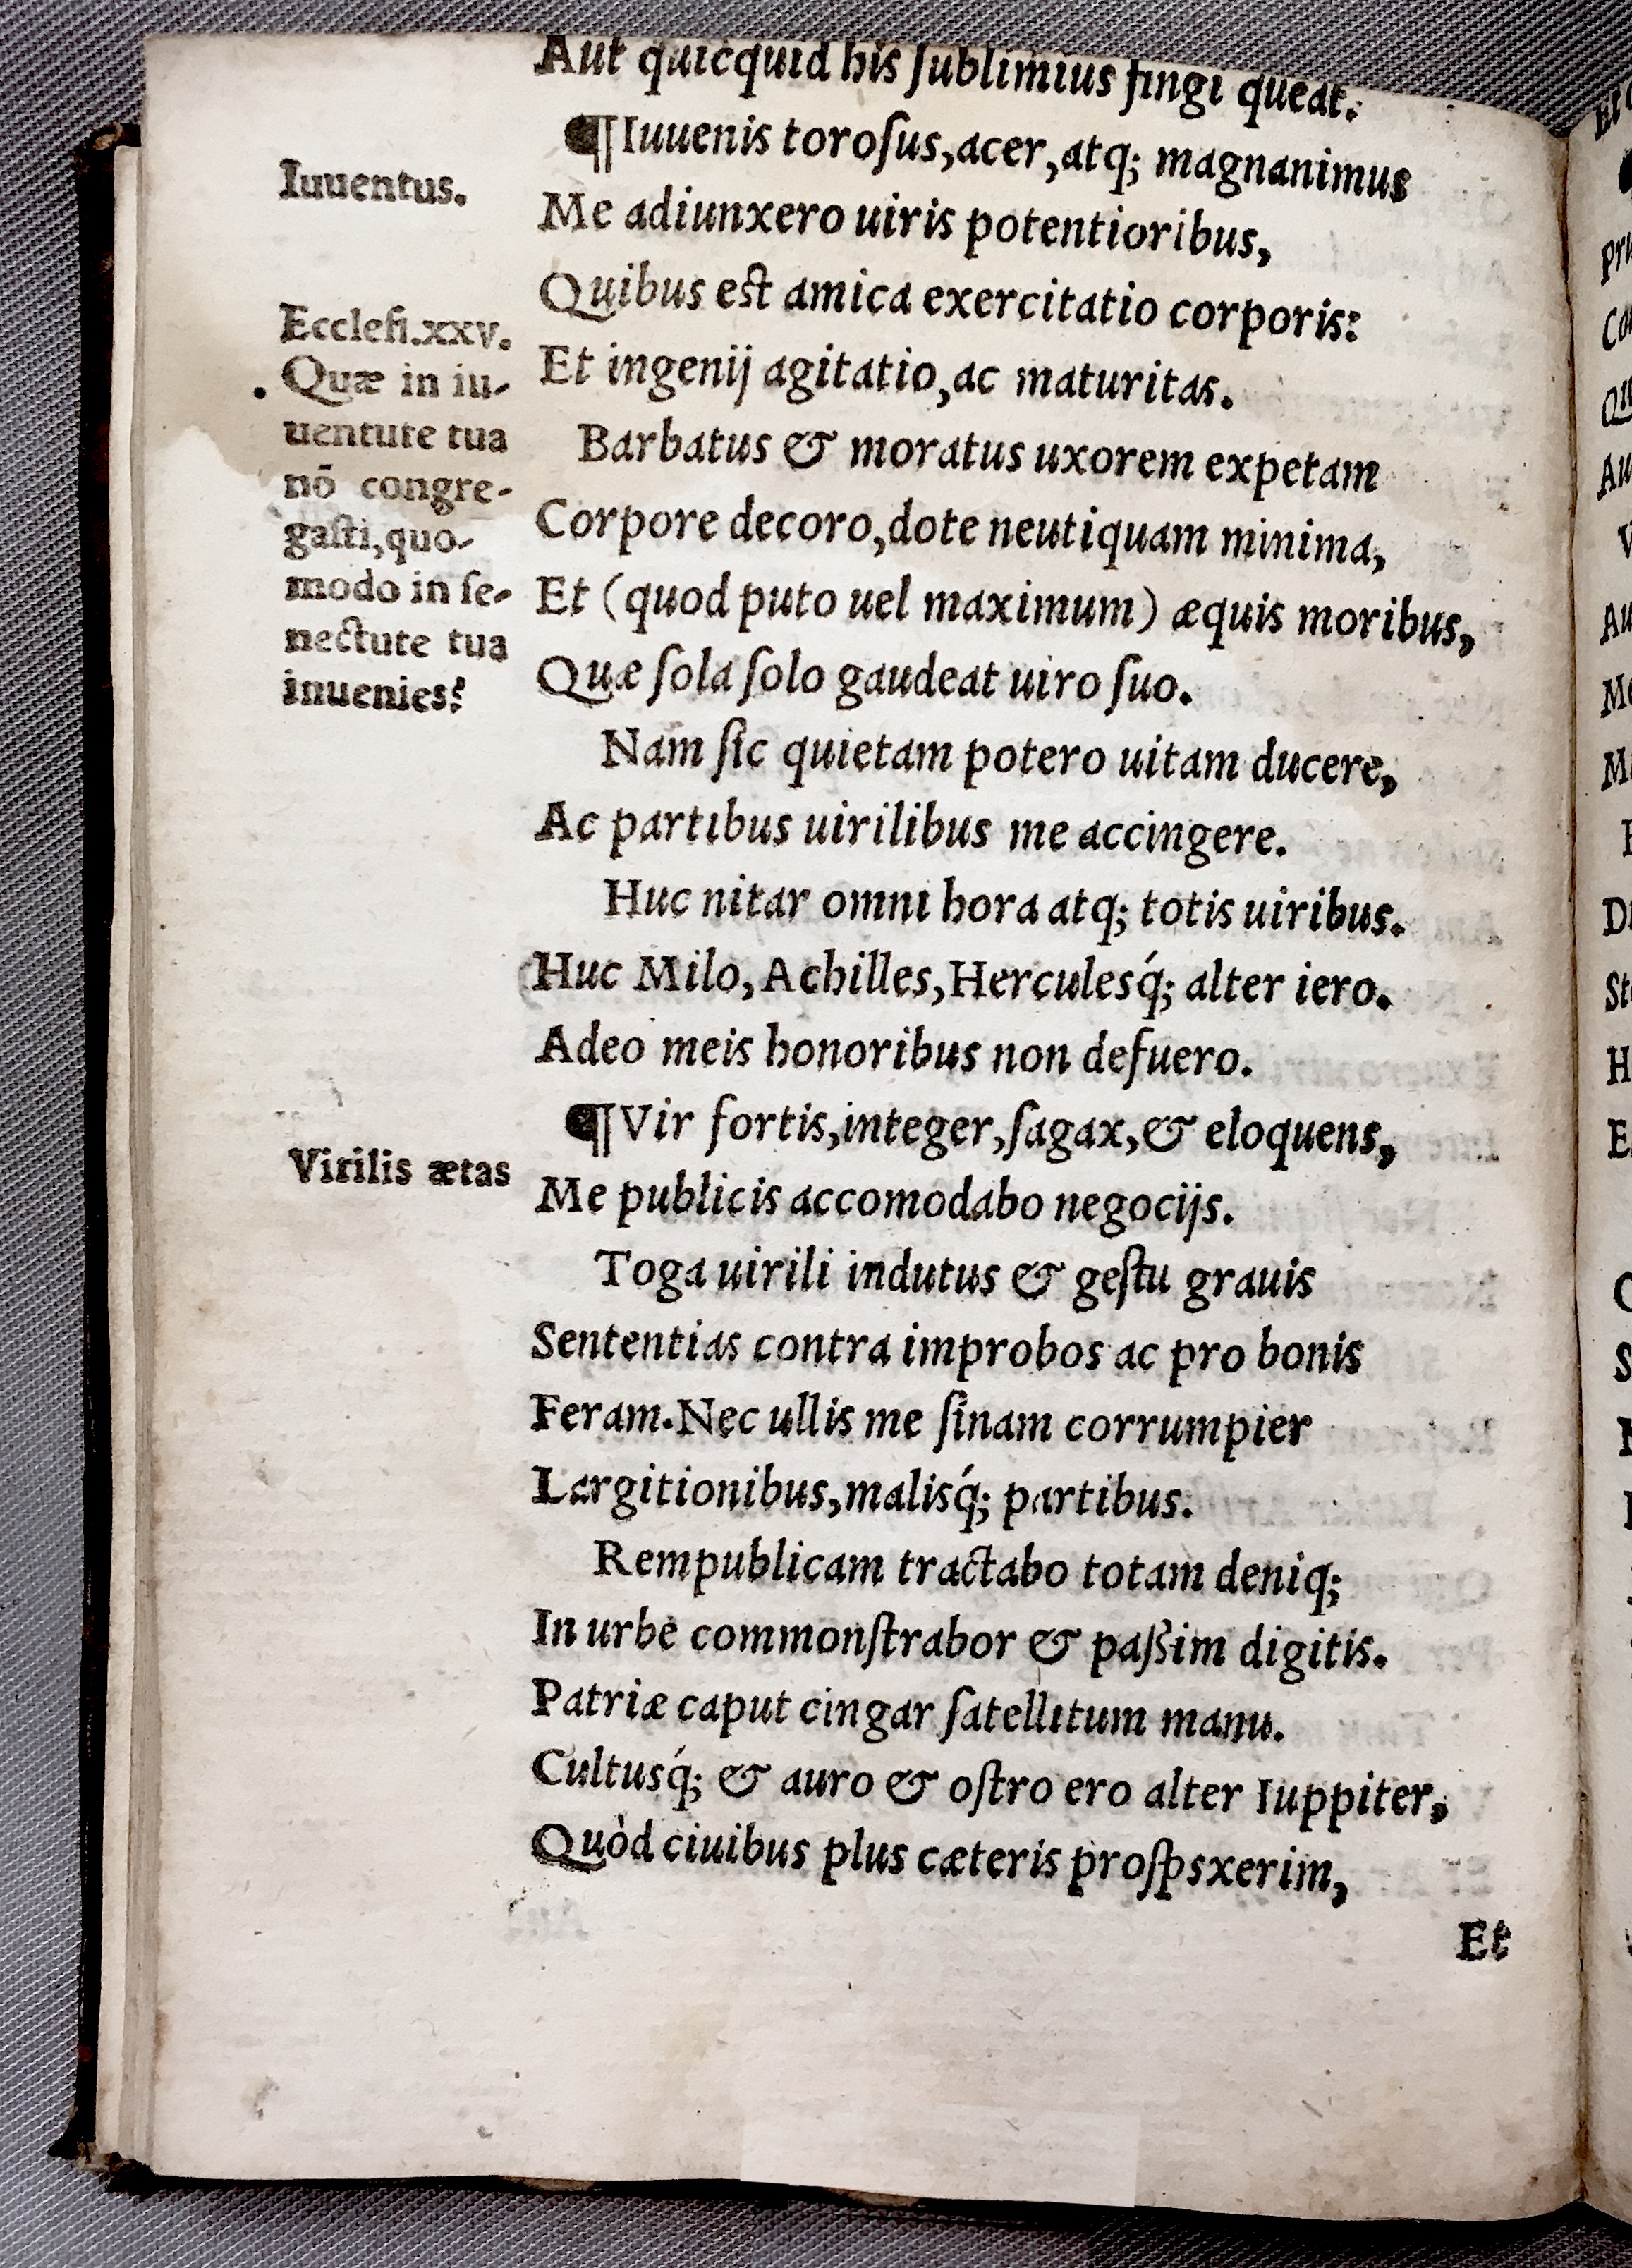 Aut quicquid his ſublimius fingi queat.
¶Iuuenis toroſus,acer,atq; magnanimus
Me adiunxero uiris potentioribus,
Quibus est amica exercitatio corporis:
Et ingenij agitatio,ac maturitas.
Barbatus & moratus uxorem expetam
Corpore decoro,dote neutiquam minima,
Et (quod puto uel maximum) æquis moribus,
Quæ ſola ſolo gaudeat uiro ſuo.
Nam ſic quietam potero uitam ducere,
Ac partibus uirilibus me accingere.
Huc nitar omni hora atq; totis uiribus.
Huc Milo,Achilles,Herculesq́; alter iero.
Adeo meis honoribus non defuero.
¶Vir fortis,integer,ſagax,& eloquens,
Me publicis accomodabo negocijs.
Toga uirili indutus & geſtu grauis
Sententias contra improbos ac pro bonis
Feram.Nec ullis me ſinam corrumpier
Largitionibus,malisq́; partibus.
Rempublicam tractabo totam deniq;
In urbe commonſtrabor & paßim digitis.
Patriæ caput cingar ſatellitum manu.
Cultusq́; & auro & oſtro ero alter Iuppiter,
Quòd ciuibus plus cæteris proſpsxerim,
Et
Iuuentus.
Eccleſi.xxv.
Quæ in iu-
uentute tua
nō congre-
gaſti,quo-
modo in ſe-
nectute tua
inuenies?
Virilis ætas